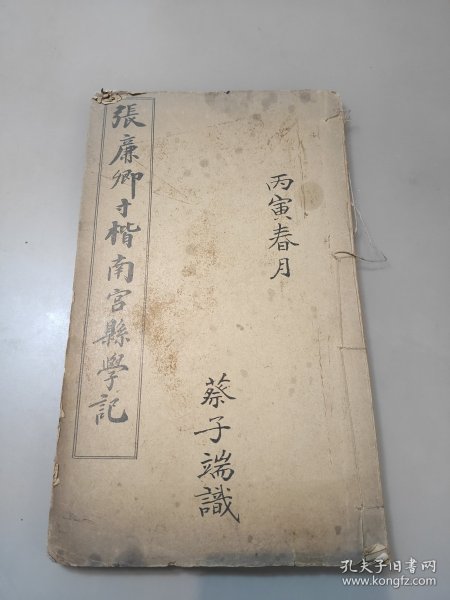 張廉卿寸楷南宮縣學記
丙寅春月
蔡子端識
孔夫子旧书网
www.kongfz.com